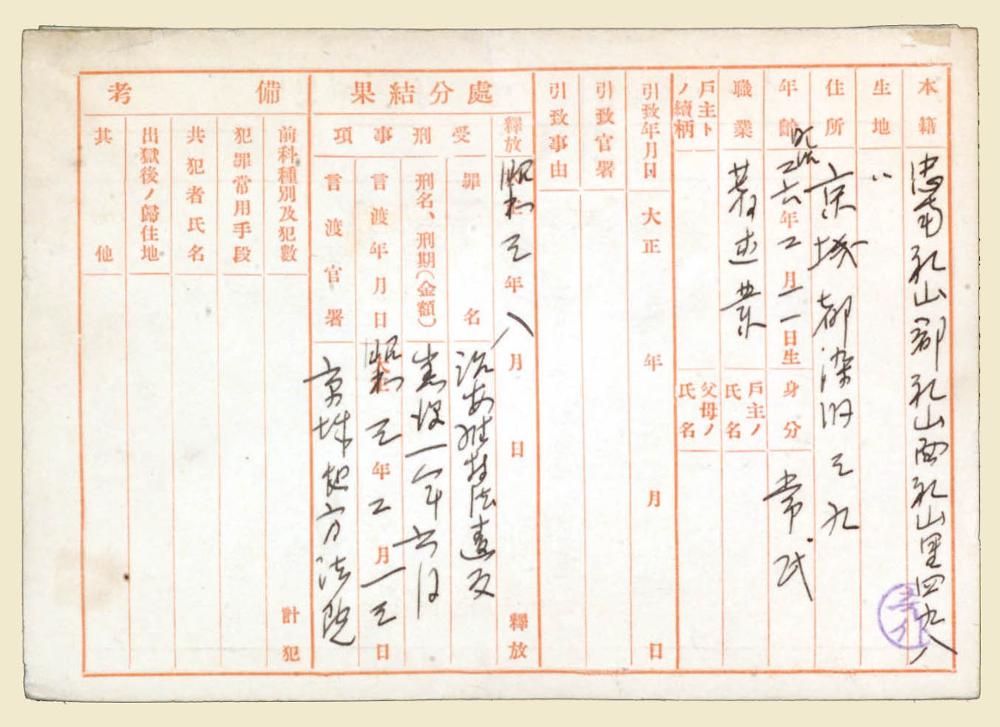 本籍 忠南礼山郡礼山面礼山里四九八
生地 〃
住所 京城都染町三九
年齢 明治二六年二月二一日生 身分 常民
職業 著述業 戸主ノ氏名
戸主トノ続柄 父母ノ氏名
引致年月日 大正 年 月 日
引致官署
引致事由
處分結果
釋放 昭和三年八月 日 釋放
受刑事項
罪名 治安維持法違反
刑名、刑期(金額) 懲役一年六月
言渡年月日 昭和三年二月一三日
言渡官署 京城地方法院
備考
前科種別及犯數 計 犯
犯罪常用手段
共犯者氏名
出獄後ノ歸住地
其他